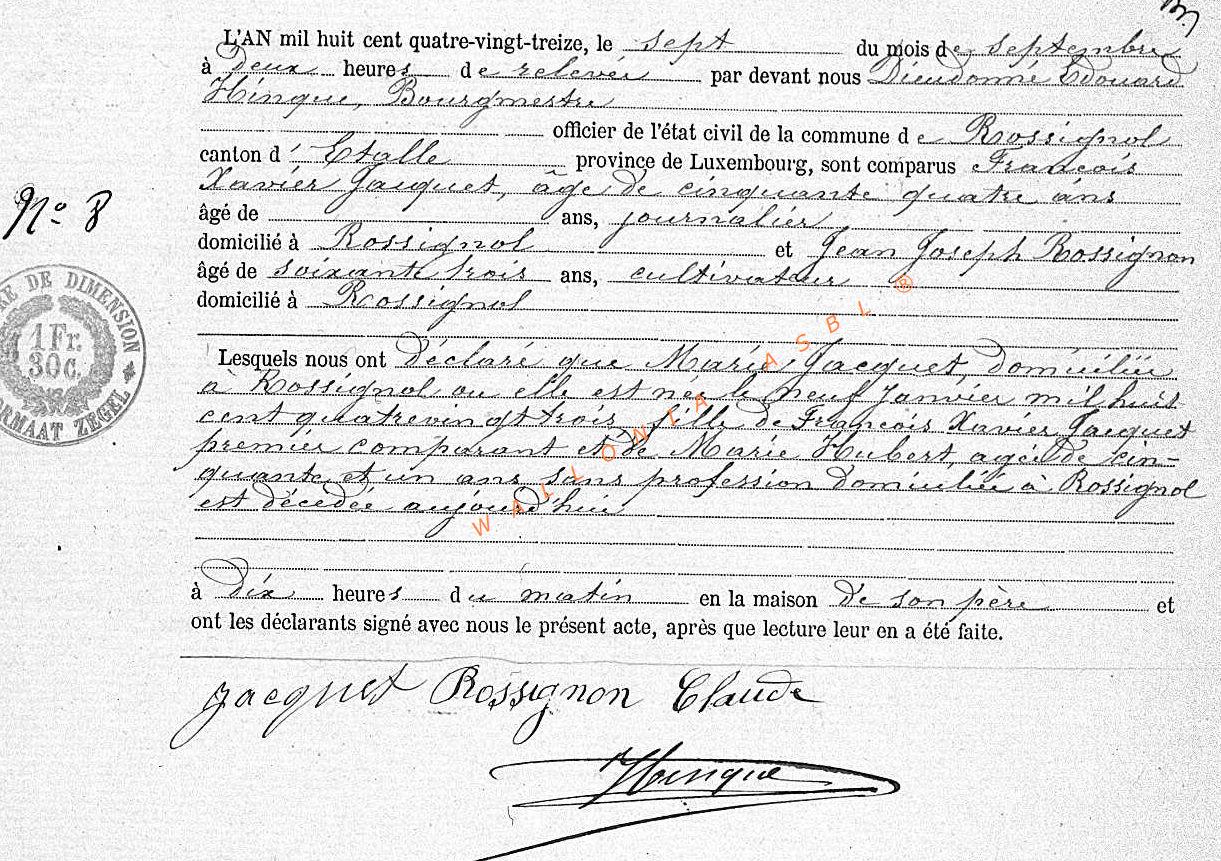 L'AN mil huit cent quatre-vingt-treize, le sept du mois de septembre
à deux heures de relevée par devant nous Dieudonné Edouard
Hinque, Bourgmestre
officier de l'état civil de la commune de Rossignol
canton d'Etalle province de Luxembourg, sont comparus François
Xavier Jacquet, âgé de cinquante quatre ans
âgé de ans, journalier
domicilié à Rossignol et Jean Joseph Rossignon
âgé de soixante trois ans, cultivateur
domicilié à Rossignol
Lesquels nous ont déclaré que Marie Jacquet, domiciliée
à Rossignol ou elle est née le neuf Janvier mil huit
cent quatrevingt trois, fille de François Xavier Jacquet
premier comparant et de Marie Hubert, agée de cin-
quante et un ans sans profession domiciliée à Rossignol
est décédée aujourd'hui
à dix heures du matin en la maison de son père et
ont les déclarants signé avec nous le présent acte, après que lecture leur en a été faite.
Jacquet Rossignon Claude
Hinque
No 8
DE DIMENSION
1 Fr.
30 c.
FORMAAT ZEGEL
WALLONIA ASBL ®